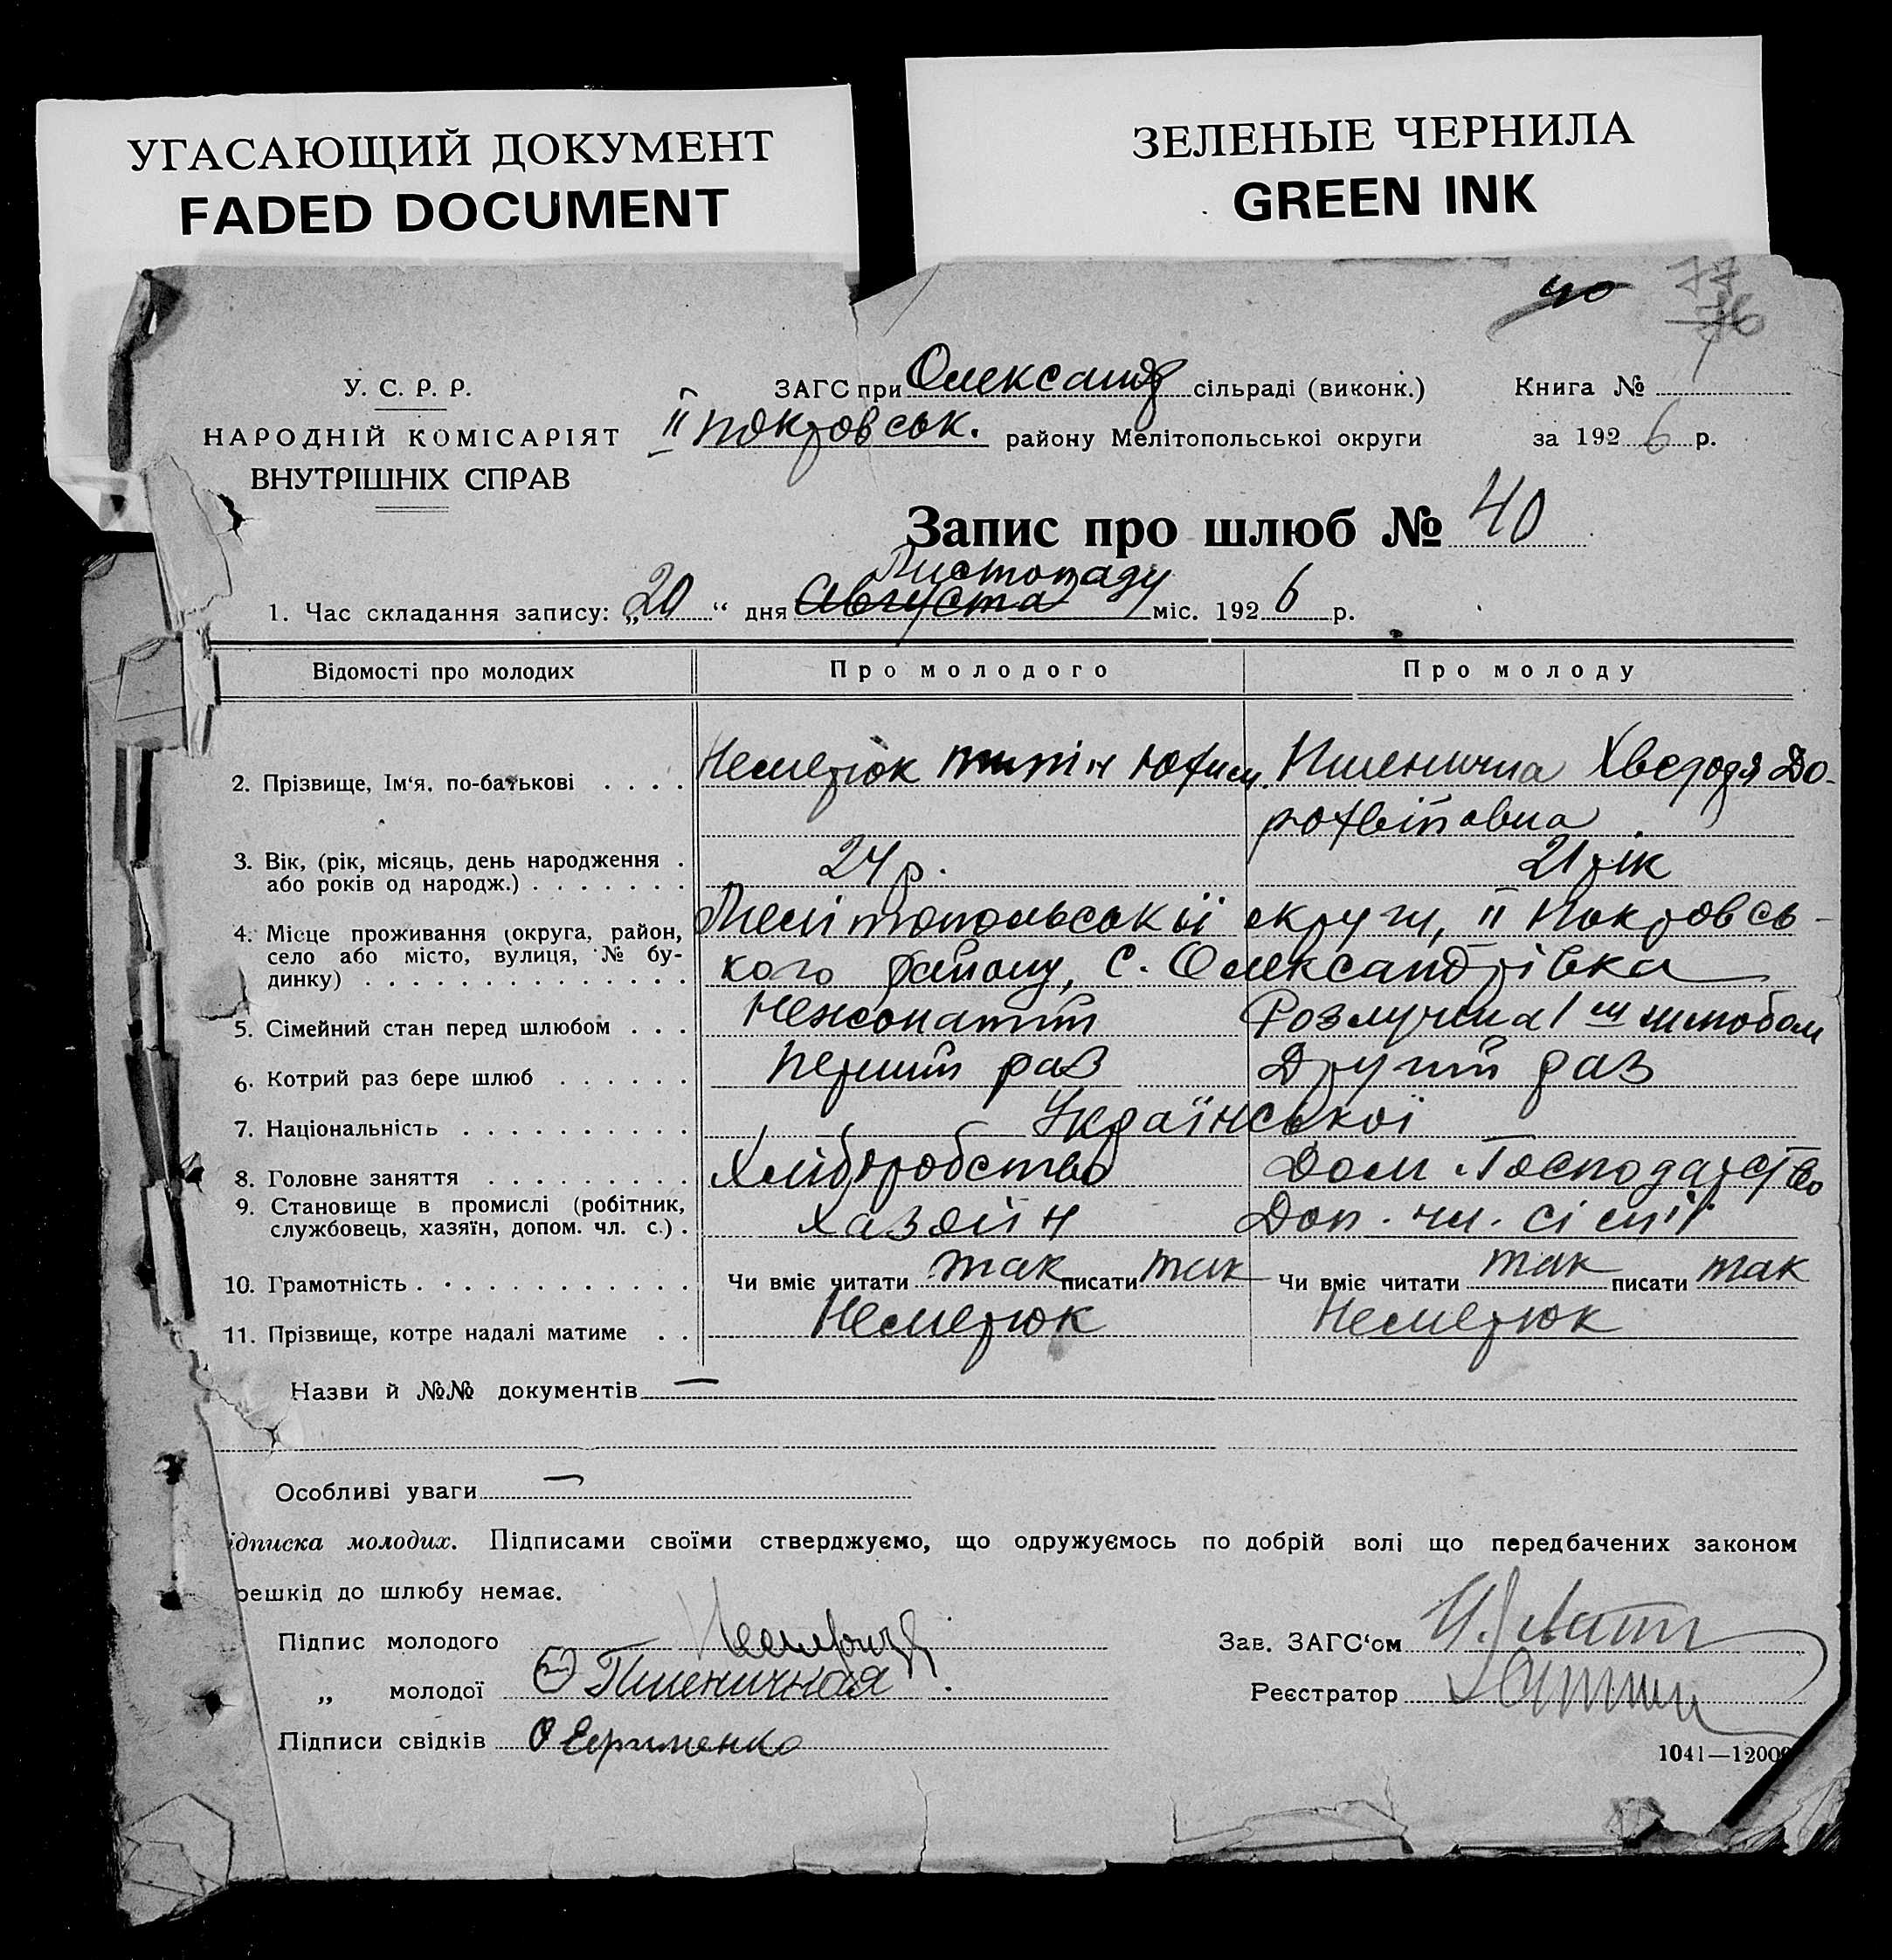 УГАСАЮЩИЙ ДОКУМЕНТ
FADED DOCUMENT
ЗЕЛЕНЫЕ ЧЕРНИЛА
GREEN INK
40 77
76
У. С. Р. Р.
НАРОДНІЙ КОМІСАРІЯТ
ВНУТРІШНІХ СПРАВ
ЗАГС при Олександр сільраді (виконк.)
II Покровськ. району Мелітопольської округи
Книга №
за 1926 р.
Запис про шлюб № 40
Листопаду
1. Час складання запису: „20“ дня Августа міс. 1926 р.
Відомості про молодих Про молодого Про молоду
2. Прізвище, Ім‘я, по-батькові . . . . Немерюк Юхим. Пшенична Хведодя До-
рофеївна
3. Вік, (рік, місяць, день народження . 24 р. 21 рік
або років од народж.) . . . . . . .
4. Місце проживання (округа, район, Мелітопольської округи, II Покровсь-
село або місто, вулиця, № бу- кого району, С. Олександрівка
динку) . . . . . . . . . . . . . .
5. Сімейний стан перед шлюбом . . . Неженатий Розлучена 1м шлюбом
6. Котрий раз бере шлюб . . . . . . Перший раз Другий раз
7. Національність . . . . . . . . . . Української
8. Головне заняття . . . . . . . . . Хліборобство Дом. Господарство
9. Становище в промислі (робітник, хазяїн Доп. чл. сімії
службовець, хазяїн, допом. чл. с.) .
10. Грамотність . . . . . . . . . . . Чи вміє читати так писати так Чи вміє читати так писати так
11. Прізвище, котре надалі матиме . . Немерюк Немерюк
Назви й №№ документів —
Особливі уваги —
ідписка молодих. Підписами своїми стверджуємо, що одружуємось по добрій волі що передбачених законом
решкід до шлюбу немає.
Підпис молодого
„ молодої Пшеничная
Підписи свідків О Ефименко
Зав. ЗАГС‘ом
Реєстратор
1041—12000